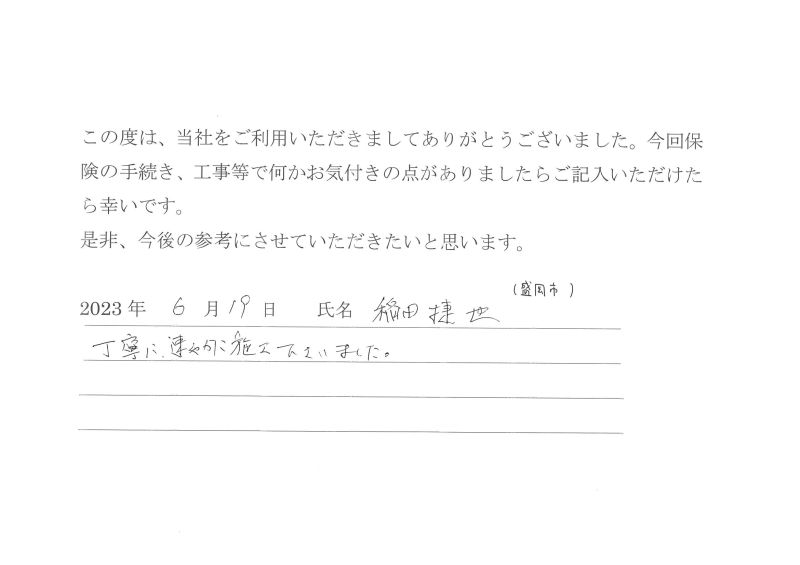 この度は、当社をご利用いただきましてありがとうございました。今回保
険の手続き、工事等で何かお気付きの点がありましたらご記入いただけた
ら幸いです。
是非、今後の参考にさせていただきたいと思います。
(盛岡市)
2023年 6月19日 氏名 稲田捷也
丁寧に、速やかに施工下さいました。